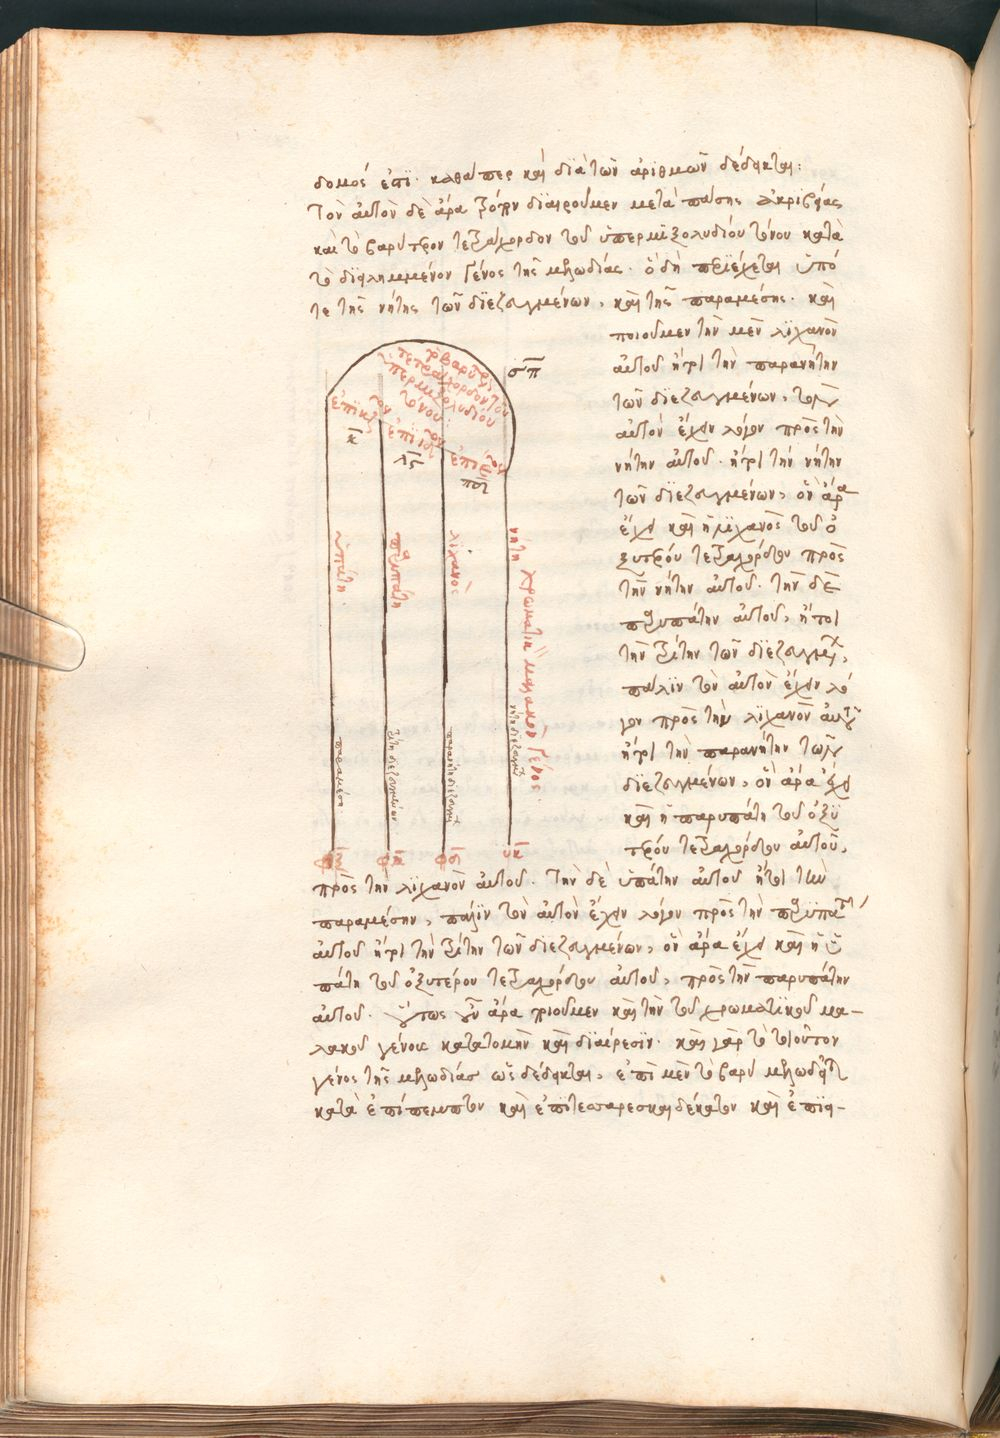 δομος ἐπϊ· καθάπερ καὶ διὰ τῶν ἀριθμῶν δέδεικται:
Τὸν αὐτὸν δὲ ἄρα τρόπον διαιροῦμεν μετὰ πάσης ἀκριβείας
καὶ τὸ βαρύτερον τετράχορδον τοῦ ὑπερμιξολυδίου τόνου κατὰ
τὸ διειλημμένον γένος τῆς μελῳδίας· ὃ δὴ περιέχεται ὑπό
τε τῆς νήτης τῶν διεζευγμένων, καὶ τῆς παραμέσης· καὶ
ποιοῦμεν τὴν μὲν λιχανὸν
αὐτοῦ ἤτοι τὴν παρανήτην
τῶν διεζευγμένων, τὸν
αὐτὸν ἔχειν λόγον πρὸς τὴν
νήτην αὐτοῦ· ἤτοι τὴν νήτην
τῶν διεζευγμένων, ὃν ἄρα
ἔχει καὶ ἡ λιχανὸς τοῦ ὀ
ξυτέρου τετραχόρδου πρὸς
τὴν νήτην αὐτοῦ· τὴν δὲ
παρυπάτην αὐτοῦ, ἤτοι
τὴν τρίτην τῶν διεζευγμένων,
πάλιν τὸν αὐτὸν ἔχειν λό
γον πρὸς τὴν λιχανὸν αὐτοῦ
ἤτοι τὴν παρανήτην τῶν
διεζευγμένων, ὃν ἄρα ἔχει
καὶ ἡ παρυπάτη τοῦ ὀξυ
τέρου τετραχόρδου αὐτοῦ,
πρὸς τὴν λιχανὸν αὐτοῦ· Τὴν δὲ ὑπάτην αὐτοῦ ἤτοι τὴν
παραμέσην, πάλιν τὸν αὐτὸν ἔχειν λόγον πρὸς τὴν παρυπάτην
αὐτοῦ ἤτοι τὴν τρίτην τῶν διεζευγμένων, ὃν ἄρα ἔχει καὶ ἡ ὑ
πάτη τοῦ ὀξυτέρου τετραχόρδου αὐτοῦ, πρὸς τὴν παρυπάτην
αὐτοῦ· οὕτως οὖν ἄρα ποιοῦμεν καὶ τὴν τοῦ χρωματικοῦ μα-
λακοῦ γένους κατατομὴν καὶ διαίρεσιν· καὶ γὰρ τὸ τοιοῦτον
γένος τῆς μελῳδίας ὡς δέδεικται, ἐπὶ μὲν τὸ βαρὺ μελῳδεῖται
κατὰ ἐπίπεμπτον καὶ ἐπιτεσσαρεσκαιδέκατον καὶ ἐπιει-
τὸ βαρύτερον
τετράχορδον τοῦ
ὑπερμιξολυδίου
τόνου:
σπ
κ
λς
ὑπάτη
παρυπάτη
λιχανός
νήτη χρωματικὸν μαλακὸν γένος·
παραμέση
τρίτη διεζευγμένων
παρανήτη διεζευγμένων
νήτη διεζευγμένων
υκ